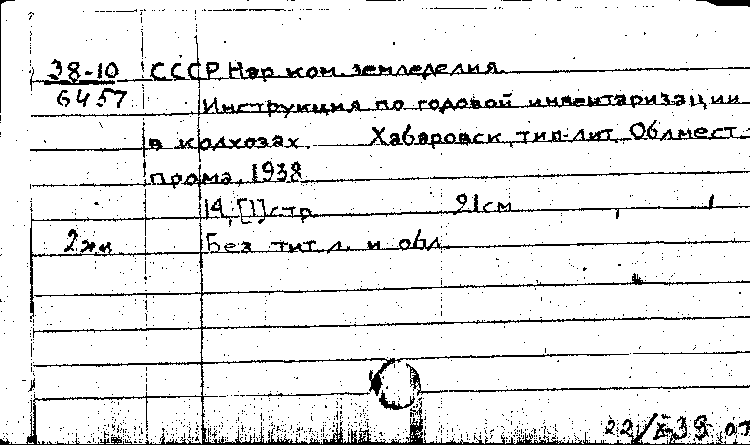 38-10 СССР Нар. ком. земледелия.
6457 Инструкция по годовой инвентаризации
в колхозах. Хабаровск, тип-лит. Облмест-
прома, 1938
14, [1] стр. 21 см
2 экз. Без тит. л. и обл.
22/X-38